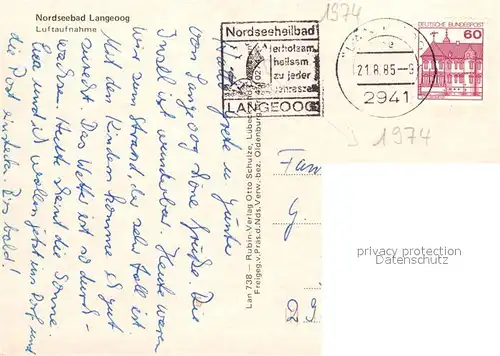 Nordseebad Langeoog
Luftaufnahme
1974
Nordseeheilbad
erholsam
heilsam
zu jeder
Jahreszeit
LANGEOOG
21.8.85-9
2941
DEUTSCHE BUNDESPOST
60
1974
u. Günter
Von Langeoog liebe Grüße. Die
Insel ist wunderbar. Heute waren
wir zum Strand, da sehr toll ist.
Mit den Kindern komme ich gut
zurecht. Das Wetter ist so durch-
wachsen. Heute scheint die Sonne.
und ich wollen jetzt ins Dorf und
die Post einstecken. Bis bald!
Lan 738 — Rubin-Verlag Otto Schulze, Lübeck
Freigeg. v. Präs. d. Nds. Verw.-bez. Oldenburg
Fam
G.
29
privacy protection
Datenschutz